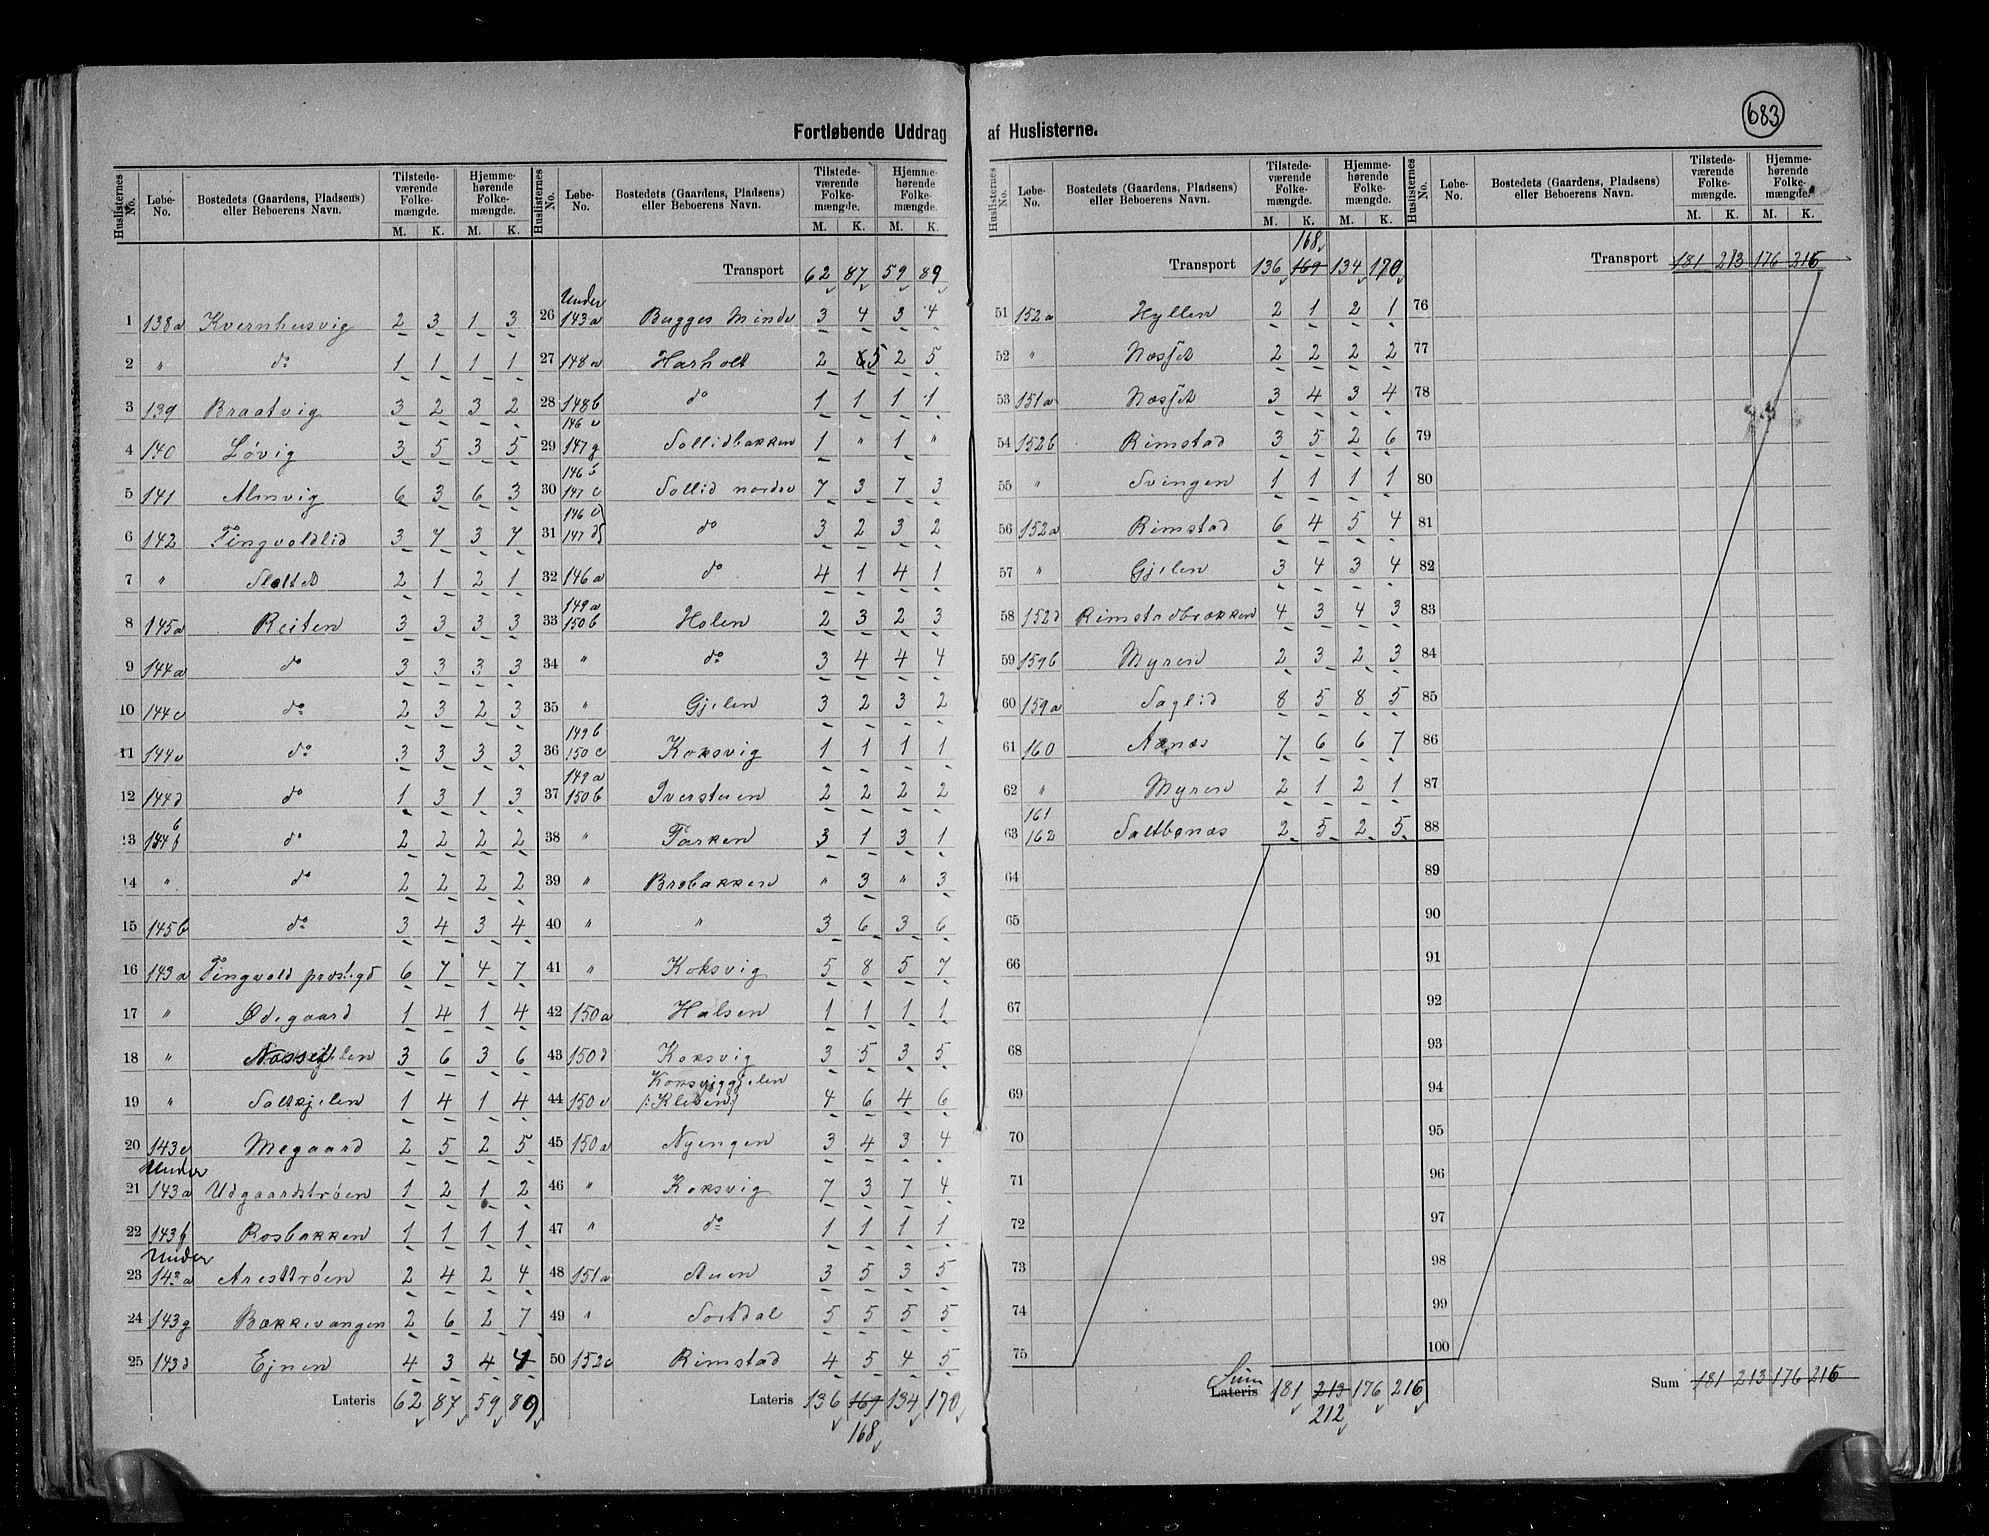 683
Fortløbende Uddrag af Huslisterne.
Huslisternes No. Løbe-No. Bostedets (Gaardens, Pladsens) eller Beboerens Navn. Tilstede-værende Folke-mængde. M. K. Hjemme-hørende Folke-mængde. M. K.
1 138a Kvernhusvig 2 3 1 3
2 " do 1 1 1 1
3 139 Braatvig 3 2 3 2
4 140 Løvig 3 5 3 5
5 141 Almvig 6 3 6 3
6 142 Tingvoldlid 3 7 3 7
7 " Slettet 2 1 2 1
8 145a Reiten 3 3 3 3
9 144a do 3 3 3 3
10 144c do 2 3 2 3
11 144e do 3 3 3 3
12 144d do 1 3 1 3
13 144 b f do 2 2 2 2
14 " do 2 2 2 2
15 145b do 3 4 3 4
16 143a Tingvold præstgd 6 7 4 7
17 " Ødegaard 1 4 1 4
18 " 3 6 3 6
19 " Saltkjelen 1 4 1 4
20 143c Megaard 2 5 2 5
21 Under 143a Udgaardstrøen 1 2 1 2
22 143f Rosbakken 1 1 1 1
23 Under 143a Aresttrøen 2 4 2 4
24 143g Bækkevangen 2 6 2 7
25 143d Ejnen 4 3 4 4
Lateris 62 87 59 89
Huslisternes No. Løbe-No. Bostedets (Gaardens, Pladsens) eller Beboerens Navn. Tilstede-værende Folke-mængde. M. K. Hjemme-hørende Folke-mængde. M. K.
Transport 62 87 59 89
26 Under 143a Bugges Minde 3 4 3 4
27 148a Harholt 2 6 5 2 5
28 148b do 1 1 1 1
29 146e 147g Sollidbakken 1 " 1 "
30 146b 147c Sollid nordre 7 3 7 3
31 146c 147d do 3 2 3 2
32 146a do 4 1 4 1
33 149a 150b Holen 2 3 2 3
34 " do 3 4 4 4
35 " Gjelen 3 2 3 2
36 149b 150c Koksvig 1 1 1 1
37 149a 150b Iverstuen 2 2 2 2
38 " Parken 3 1 3 1
39 " Brobakken " 3 " 3
40 " " 3 6 3 6
41 " Koksvig 5 8 5 7
42 150a Halsen 1 1 1 1
43 150d Koksvig 3 5 3 5
44 150e Koksviggjelen /:Kleven:/ 4 6 4 6
45 150a Nyengen 3 4 3 4
46 " Koksvig 7 3 7 4
47 " do 1 1 1 1
48 151a Auen 3 5 3 5
49 " Sortdal 5 5 5 5
50 152c Rimstad 4 5 4 5
Lateris 136 169 134 170
168
Huslisternes No. Løbe-No. Bostedets (Gaardens, Pladsens) eller Beboerens Navn. Tilstede-værende Folke-mængde. M. K. Hjemme-hørende Folke-mængde. M. K.
168
Transport 136 169 134 170
51 152a Hyllen 2 1 2 1
52 " Næsset 2 2 2 2
53 151a Næsset 3 4 3 4
54 152b Rimstad 3 5 2 6
55 " Svingen 1 1 1 1
56 152a Rimstad 6 4 5 4
57 " Gjelen 3 4 3 4
58 152d Rimstadbrækken 4 3 4 3
59 159b Myren 2 3 2 3
60 159a Saglid 8 5 8 5
61 160 Aanæs 7 6 6 7
62 " Myren 2 1 2 1
63 161 162 Saltbønæs 2 5 2 5
64
65
66
67
68
69
70
71
72
73
74
75
Sum
Lateris 181 213 176 216
212
Huslisternes No. Løbe-No. Bostedets (Gaardens, Pladsens) eller Beboerens Navn. Tilstede-værende Folke-mængde. M. K. Hjemme-hørende Folke-mængde. M. K.
Transport 181 213 176 216
76
77
78
79
80
81
82
83
84
85
86
87
88
89
90
91
92
93
94
95
96
97
98
99
100
Sum 181 213 176 216